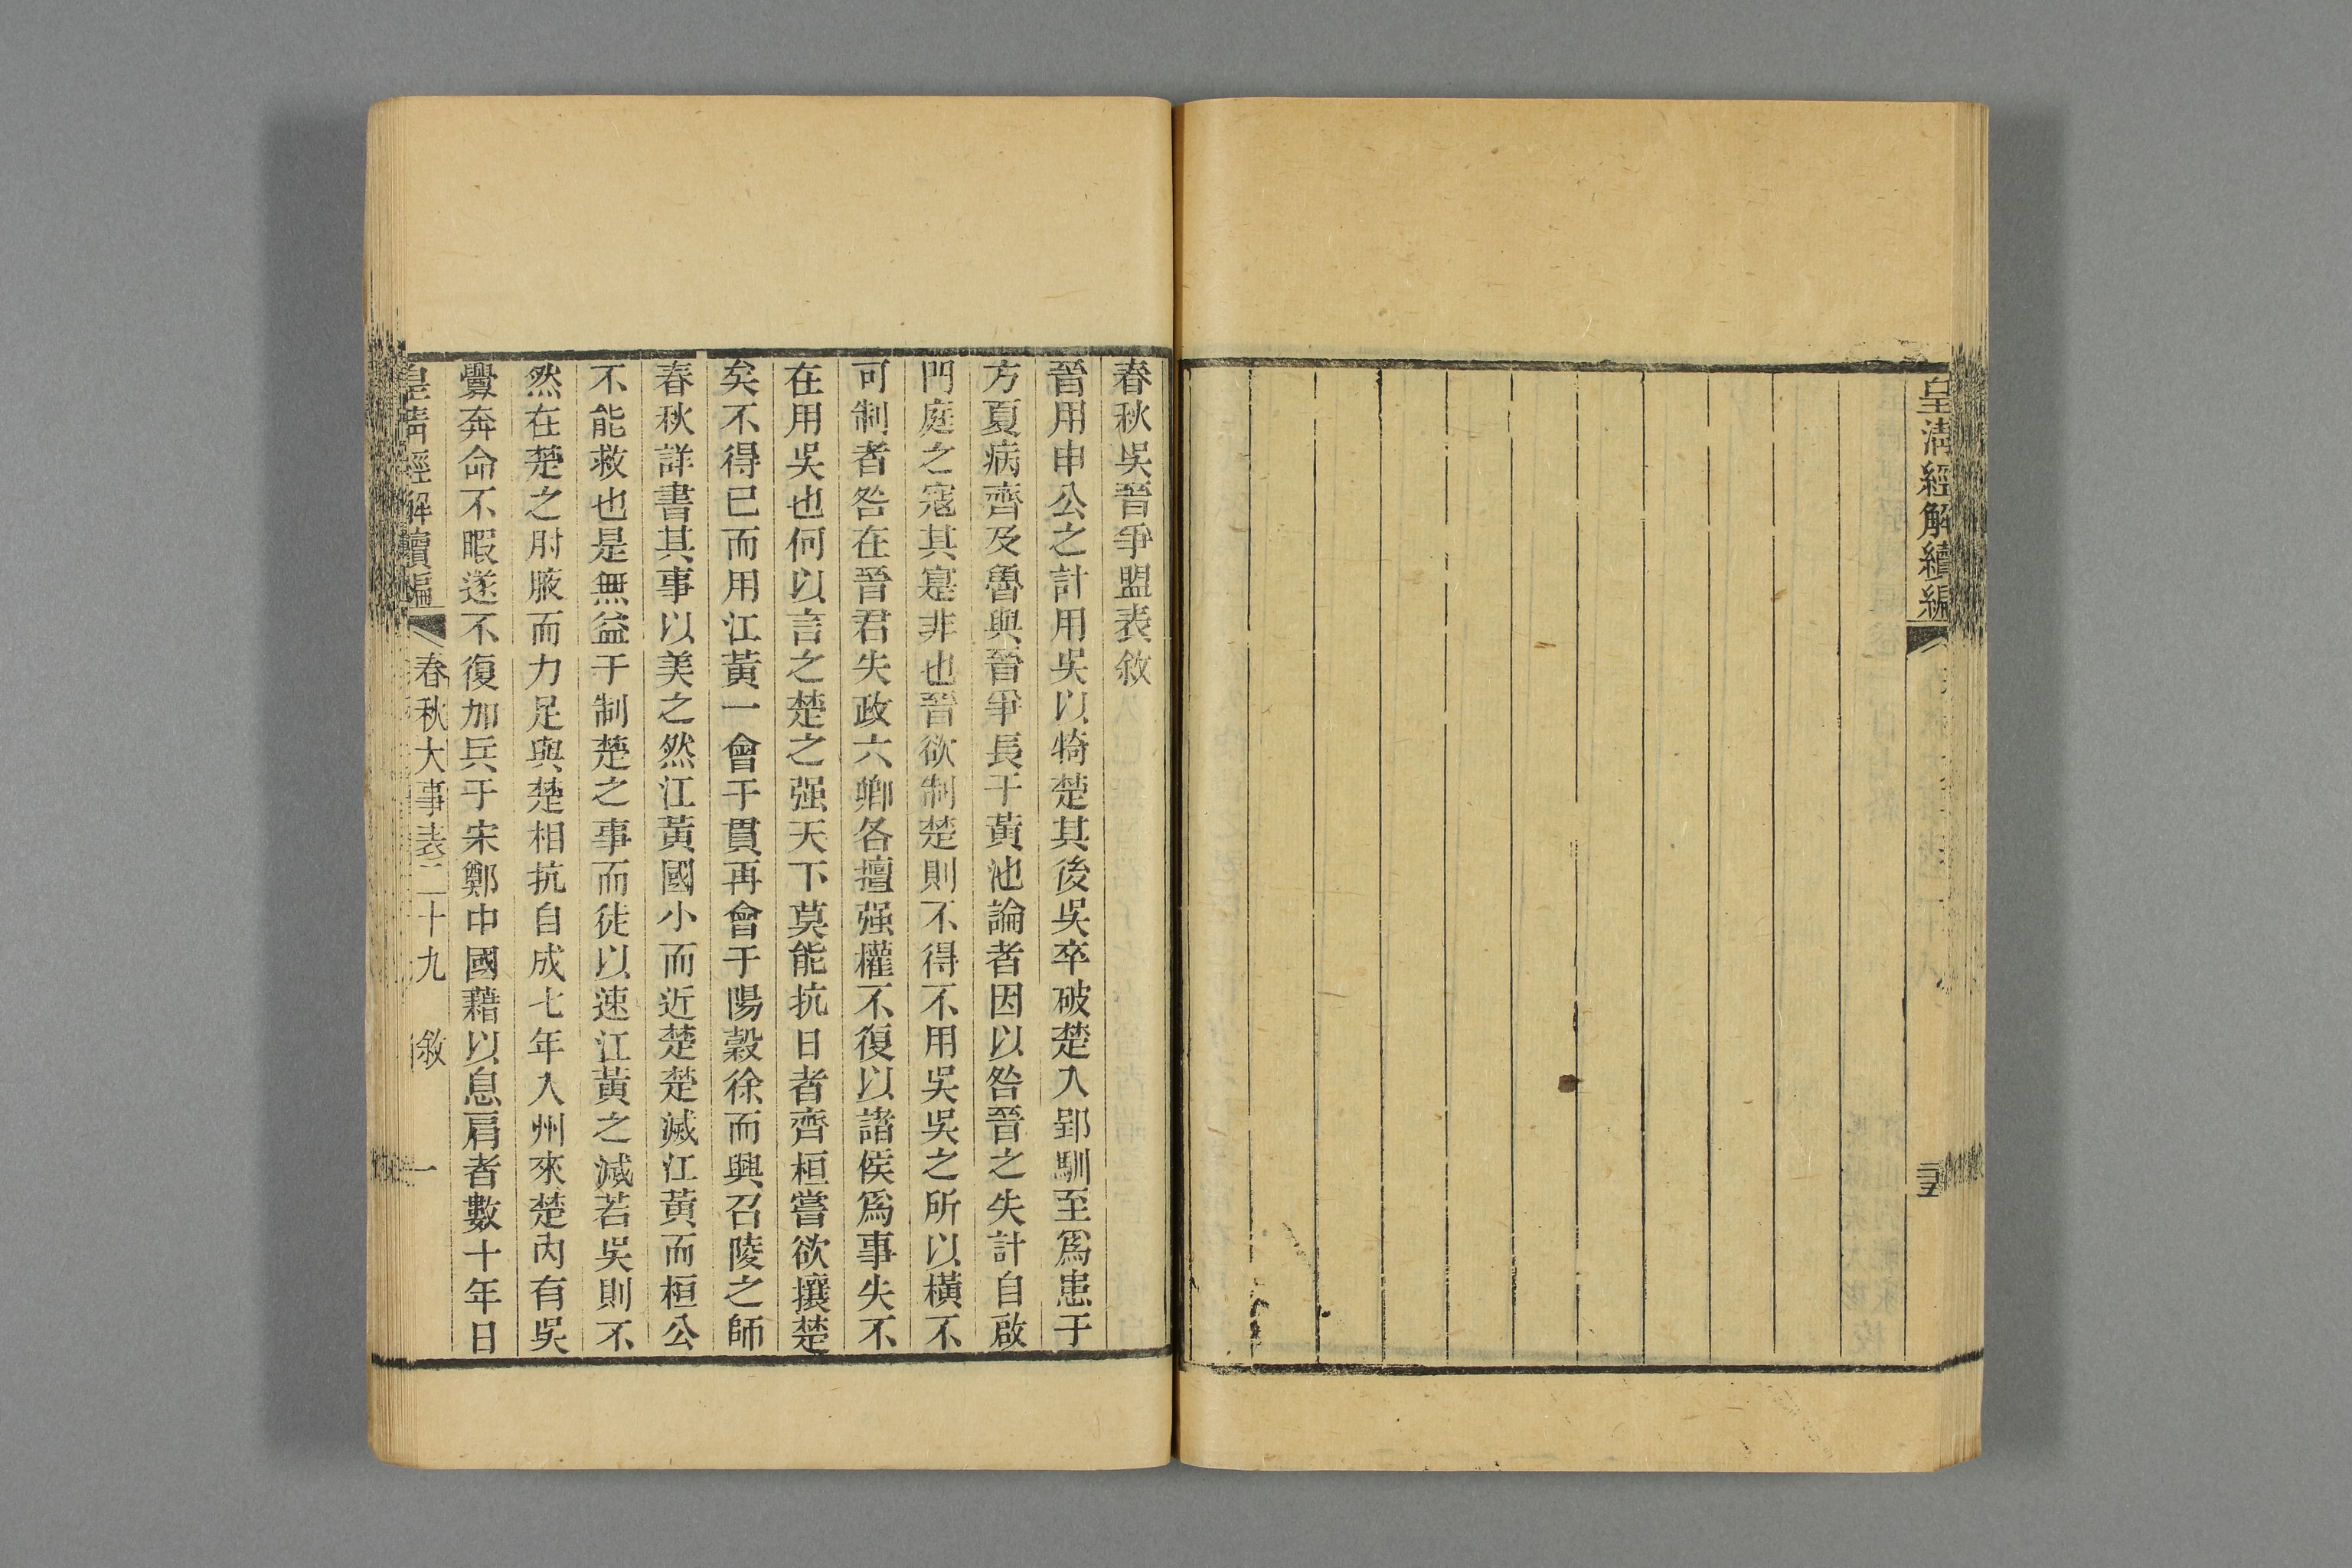 皇清經解續編
三五
春秋吳晉爭盟表敘
晉用申公之計用吳以犄楚其後吳卒破楚入郢馴至爲患于
方夏病齊及魯與晉爭長于黃池論者因以咎晉之失計自啟
門庭之寇其寔非也晉欲制楚則不得不用吳吳之所以橫不
可制者咎在晉君失政六卿各擅强權不復以諸侯爲事失不
在用吳也何以言之楚之强天下莫能抗日者齊桓嘗欲攘楚
矣不得已而用江黃一會于貫再會于陽穀徐而興召陵之師
春秋詳書其事以美之然江黃國小而近楚楚滅江黃而桓公
不能救也是無益于制楚之事而徒以速江黃之滅若吳則不
然在楚之肘腋而力足與楚相抗自成七年入州來楚內有吳
釁奔命不暇遂不復加兵于宋鄭中國藉以息肩者數十年日
皇清經解續編 春秋大事表二十九 敘 一